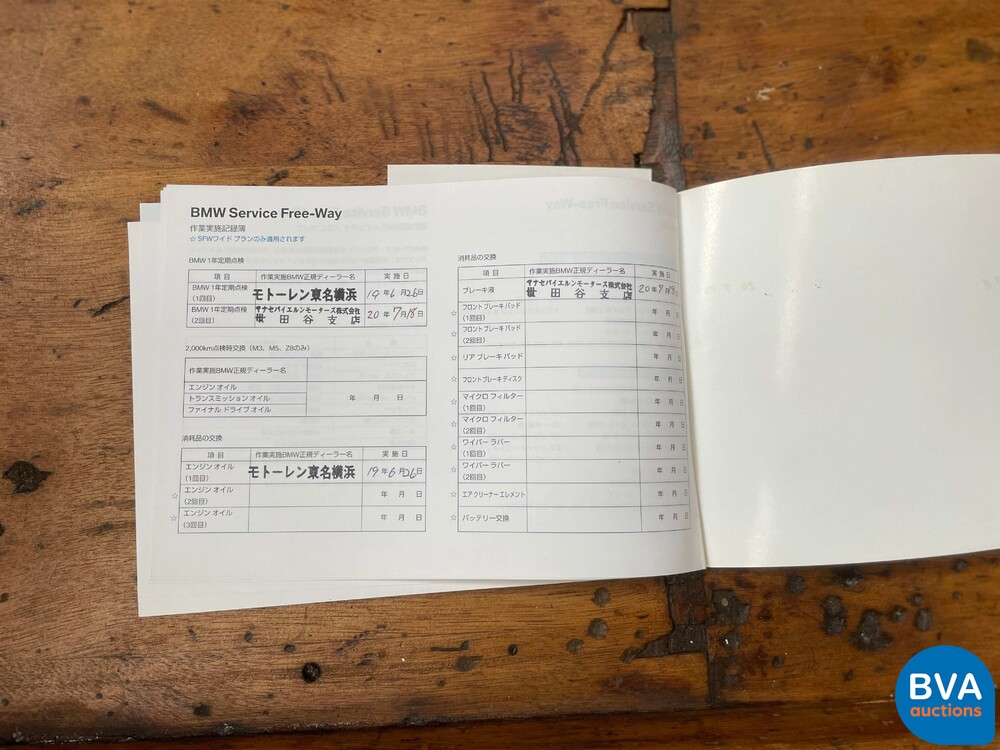 BMW Service Free-Way
作業実施記録簿
☆ SFWワイド プランのみ適用されます
BMW 1年定期点検
項 目 作業実施BMW正規ディーラー名 実 施 日
BMW 1年定期点検
(1回目) モトーレン東名横浜 19年6月26日
BMW 1年定期点検
(2回目) サナセバイエルンモーターズ株式会社
世田谷支店 20年7月18日
2,000km点検時交換（M3、M5、Z8のみ）
作業実施BMW正規ディーラー名
エンジン オイル
トランスミッション オイル 年 月 日
ファイナル ドライブ オイル
消耗品の交換
項 目 作業実施BMW正規ディーラー名 実 施 日
エンジン オイル
(1回目) モトーレン東名横浜 19年6月26日
☆ エンジン オイル
(2回目) 年 月 日
☆ エンジン オイル
(3回目) 年 月 日
消耗品の交換
項 目 作業実施BMW正規ディーラー名 実 施 日
ブレーキ液 サナセバイエルンモーターズ株式会社
世田谷支店 20年7月18日
☆ フロント ブレーキ パッド
(1回目) 年 月 日
☆ フロント ブレーキ パッド
(2回目) 年 月 日
☆ リア ブレーキ パッド 年 月 日
☆ フロント ブレーキ ディスク 年 月 日
☆ マイクロ フィルター
(1回目) 年 月 日
☆ マイクロ フィルター
(2回目) 年 月 日
☆ ワイパー ラバー
(1回目) 年 月 日
☆ ワイパー ラバー
(2回目) 年 月 日
☆ エア クリーナー エレメント 年 月 日
☆ バッテリー交換 年 月 日
BVA
auctions